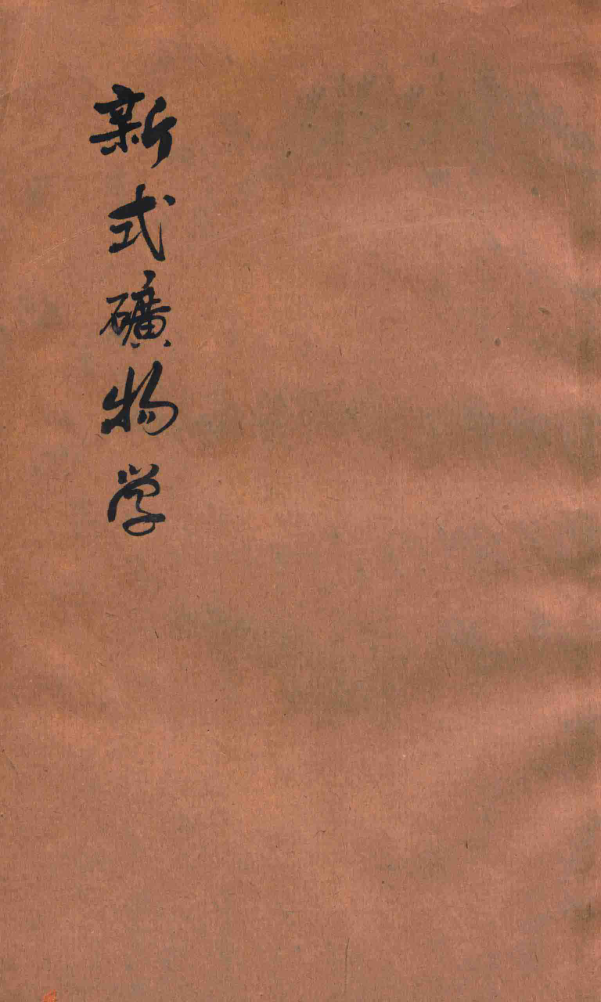 新式礦物学